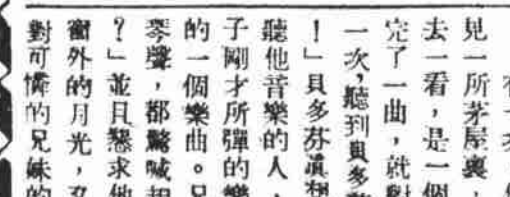 見一所茅屋裏，
去一看，是一個
完了一曲，就對
一次，聽到貝多
！」貝多芬真想
聽他音樂的人，
子剛才所彈的樂
的一個樂曲。兄
琴聲，都驚喊
？」並且懇求他
窗外的月光，
對可憐的兄妹的